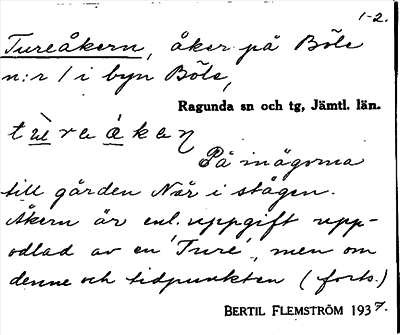 1-2.
Tureåkern, åker på Böle
n:r 1 i byn Böle,
Ragunda sn och tg, Jämtl. län.
På inägorna
till gården När i stågen.
Åkern är enl. uppgift upp-
odlad av en 'Ture', men om
denne och tidpunkten (forts.)
BERTIL FLEMSTRÖM 1937.